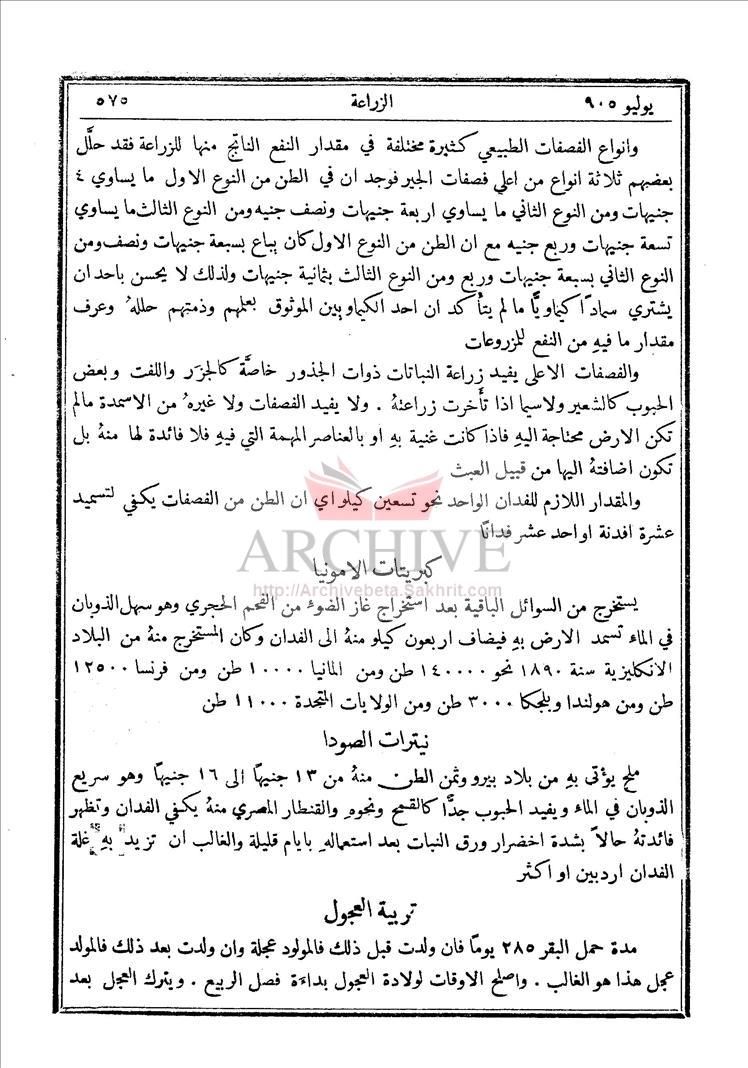 يوليو ٩٠٥ الزراعة ٥٧٥
وانواع الفصفات الطبيعي كثيرة مختلفة في مقدار النفع الناتج منها للزراعة فقد حلَّل
بعضهم ثلاثة انواع من اعلى فصفات الجير فوجد ان في الطن من النوع الاول ما يساوي ٤
جنيهات ومن النوع الثاني ما يساوي اربعة جنيهات ونصف جنيه ومن النوع الثالث ما يساوي
تسعة جنيهات وربع جنيه مع ان الطن من النوع الاول كان يباع بسبعة جنيهات ونصف ومن
النوع الثاني بسبعة جنيهات وربع ومن النوع الثالث بثمانية جنيهات ولذلك لا يحسن باحد ان
يشتري سمادًا كيماويًّا ما لم يتأكد ان احد الكيماويين الموثوق بعلمهم وذمتهم حلله ُ وعرف
مقدار ما فيهِ من النفع للمزروعات
والفصفات الاعلى يفيد زراعة النباتات ذوات الجذور خاصَّة كالجزر واللفت وبعض
الحبوب كالشعير ولاسيما اذا تأَخرت زراعتهُ . ولا يفيد الفصفات ولا غيرهُ من الاسمدة مالم
تكن الارض محتاجة اليهِ فاذا كانت غنية بهِ او بالعناصر المهمة التي فيهِ فلا فائدة لها منهُ بل
تكون اضافتهُ اليها من قبيل العبث
والمقدار اللازم للفدان الواحد نحو تسعين كيلو اي ان الطن من الفصفات يكفي لتسميد
عشرة افدنة او احد عشر فدانًا
ARCHIVE
كبريتات الامونيا
http://Archivebeta.Sakhrit.com
يستخرج من السوائل الباقية بعد استخراج غاز الضوء من الفحم الحجري وهو سهل الذوبان
في الماء تسمد الارض بهِ فيضاف اربعون كيلو منهُ الى الفدان وكان المستخرج منهُ من البلاد
الانكليزية سنة ١٨٩٠ نحو ١٤٠٠٠٠ طن ومن المانيا ١٠٠٠٠ طن ومن فرنسا ١٢٥٠٠
طن ومن هولندا وبلجكا ٣٠٠٠ طن ومن الولايات المتحدة ١١٠٠٠ طن
نيترات الصودا
ملح يؤتى بهِ من بلاد بيرو وثمن الطن منهُ من ١٣ جنيهًا الى ١٦ جنيهًا وهو سريع
الذوبان في الماء ويفيد الحبوب جدًّا كالقمح ونحوهِ والقنطار المصري منهُ يكفي الفدان وتظهر
فائدتهُ حالاً بشدة اخضرار ورق النبات بعد استعمالهِ بايام قليلة والغالب ان تزيد بهِ غلة
الفدان اردبين او اكثر
تربية العجول
مدة حمل البقر ٢٨٥ يومًا فان ولدت قبل ذلك فالمولود عجلة وان ولدت بعد ذلك فالمولد
عجل هذا هو الغالب . واصلح الاوقات لولادة العجول بداءة فصل الربيع . ويترك العجل بعد